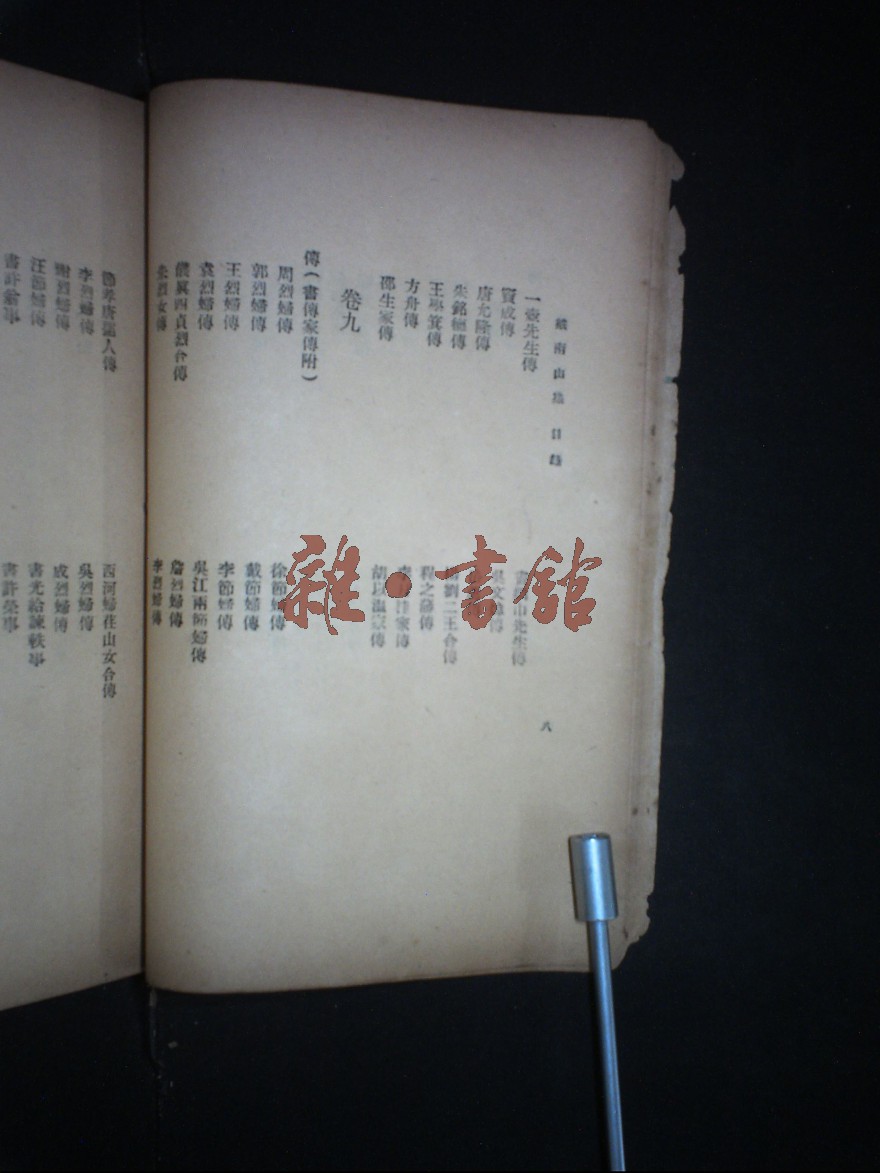 南山集 目錄
一壺先生傳
竇成傳
唐允隆傳
朱銘德傳
王學箕傳
方舟傳
邵生家傳
先生傳
劉二王合傳
程之藩傳
家傳
傳
卷九
傳(書傳家傳附)
周烈婦傳
郭烈婦傳
王烈婦傳
袁烈婦傳
四貞烈合傳
朱烈女傳
徐節婦傳
戴節婦傳
李節婦傳
吳江兩節婦傳
詹烈婦傳
李烈婦傳
八
節孝唐孺人傳
李烈婦傳
謝烈婦傳
汪節婦傳
西河婦荏山女合傳
吳烈婦傳
成烈婦傳
書光給諫軼事
書許榮事
雜·書館